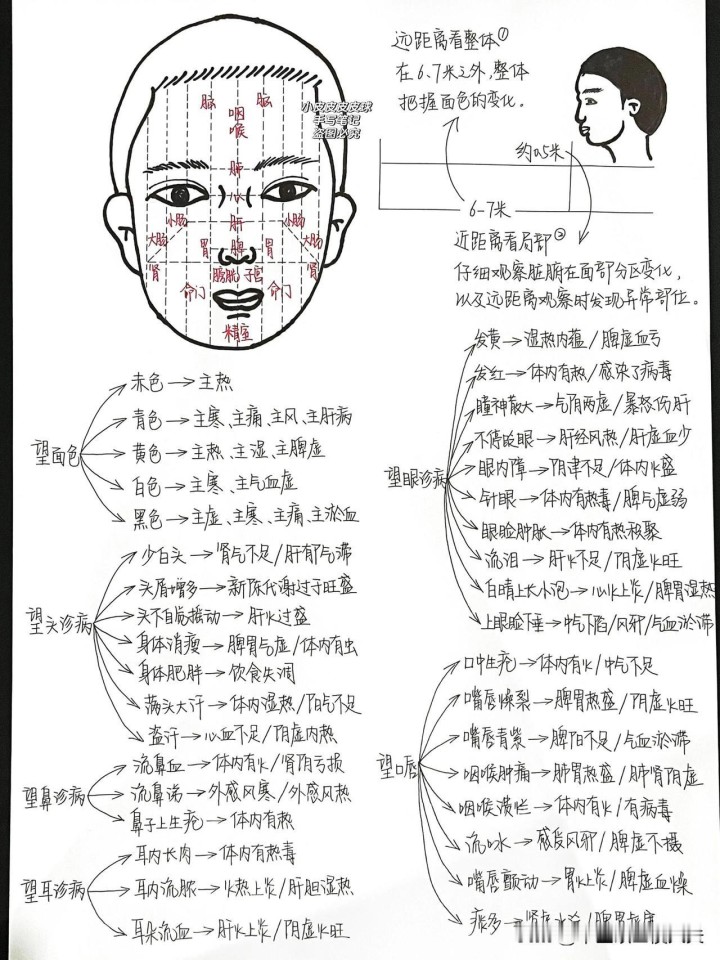 脑
脑
咽
喉
小皮皮皮皮球
手写笔记
盗图必究
肺
心
小肠
肝
小肠
大肠
胃
脾
胃
大肠
肾
膀胱 子宫
肾
命门
命门
精室
远距离看整体①
在6、7米之外,整体
把握面色的变化。
约0.5米
6-7米
近距离看局部②
仔细观察脏腑在面部分区变化,
以及远距离观察时发现异常部位。
望面色
赤色→主热
青色→主寒、主痛、主风、主肝病
黄色→主热、主湿、主脾虚
白色→主寒、主气血虚
黑色→主虚、主寒、主痛、主淤血
望头诊病
少白头→肾气不足/肝郁气滞
头屑增多→新陈代谢过于旺盛
头不自觉摇动→肝火过盛
身体消瘦→脾胃气虚/体内有虫
身体肥胖→饮食失调
满头大汗→体内湿热/阳气不足
盗汗→心血不足/阴虚内热
望鼻诊病
流鼻血→体内有火/肾阴亏损
流鼻涕→外感风寒/外感风热
鼻子上生疮→体内有热
望耳诊病
耳内长肉→体内有热毒
耳内流脓→火热上炎/肝胆湿热
耳朵流血→肝火上炎/阴虚火旺
望眼诊病
发黄→湿热内蕴/脾虚血亏
发红→体内有热/感染了病毒
瞳神散大→气阴两虚/暴怒伤肝
不停眨眼→肝经风热/肝虚血少
眼内障→阴津不足/体内火盛
针眼→体内有热毒/脾气虚弱
眼睑肿胀→体内有热积聚
流泪→肝火不足/阴虚火旺
白睛上长小泡→心火上炎/脾胃湿热
上眼睑下垂→中气下陷/风邪/气血淤滞
望口唇
口中生疮→体内有火/中气不足
嘴唇燥裂→脾胃热盛/阴虚火旺
嘴唇青紫→脾阳不足/气血淤滞
咽喉肿痛→肺胃热盛/肺肾阴虚
咽喉溃烂→体内有火/有病毒
流口水→感受风邪/脾虚不摄
嘴唇颤动→胃火上炎/脾虚血燥
痰多→